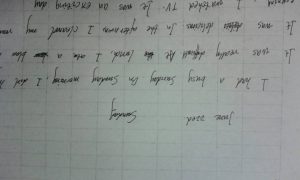 June 22nd Sunday
I had a busy Sunday. On Sunday morning, I did
It was really At lunch, I ate a
It was delicious. In the afternoon I cleaned my
I watched TV. It was an exciting day